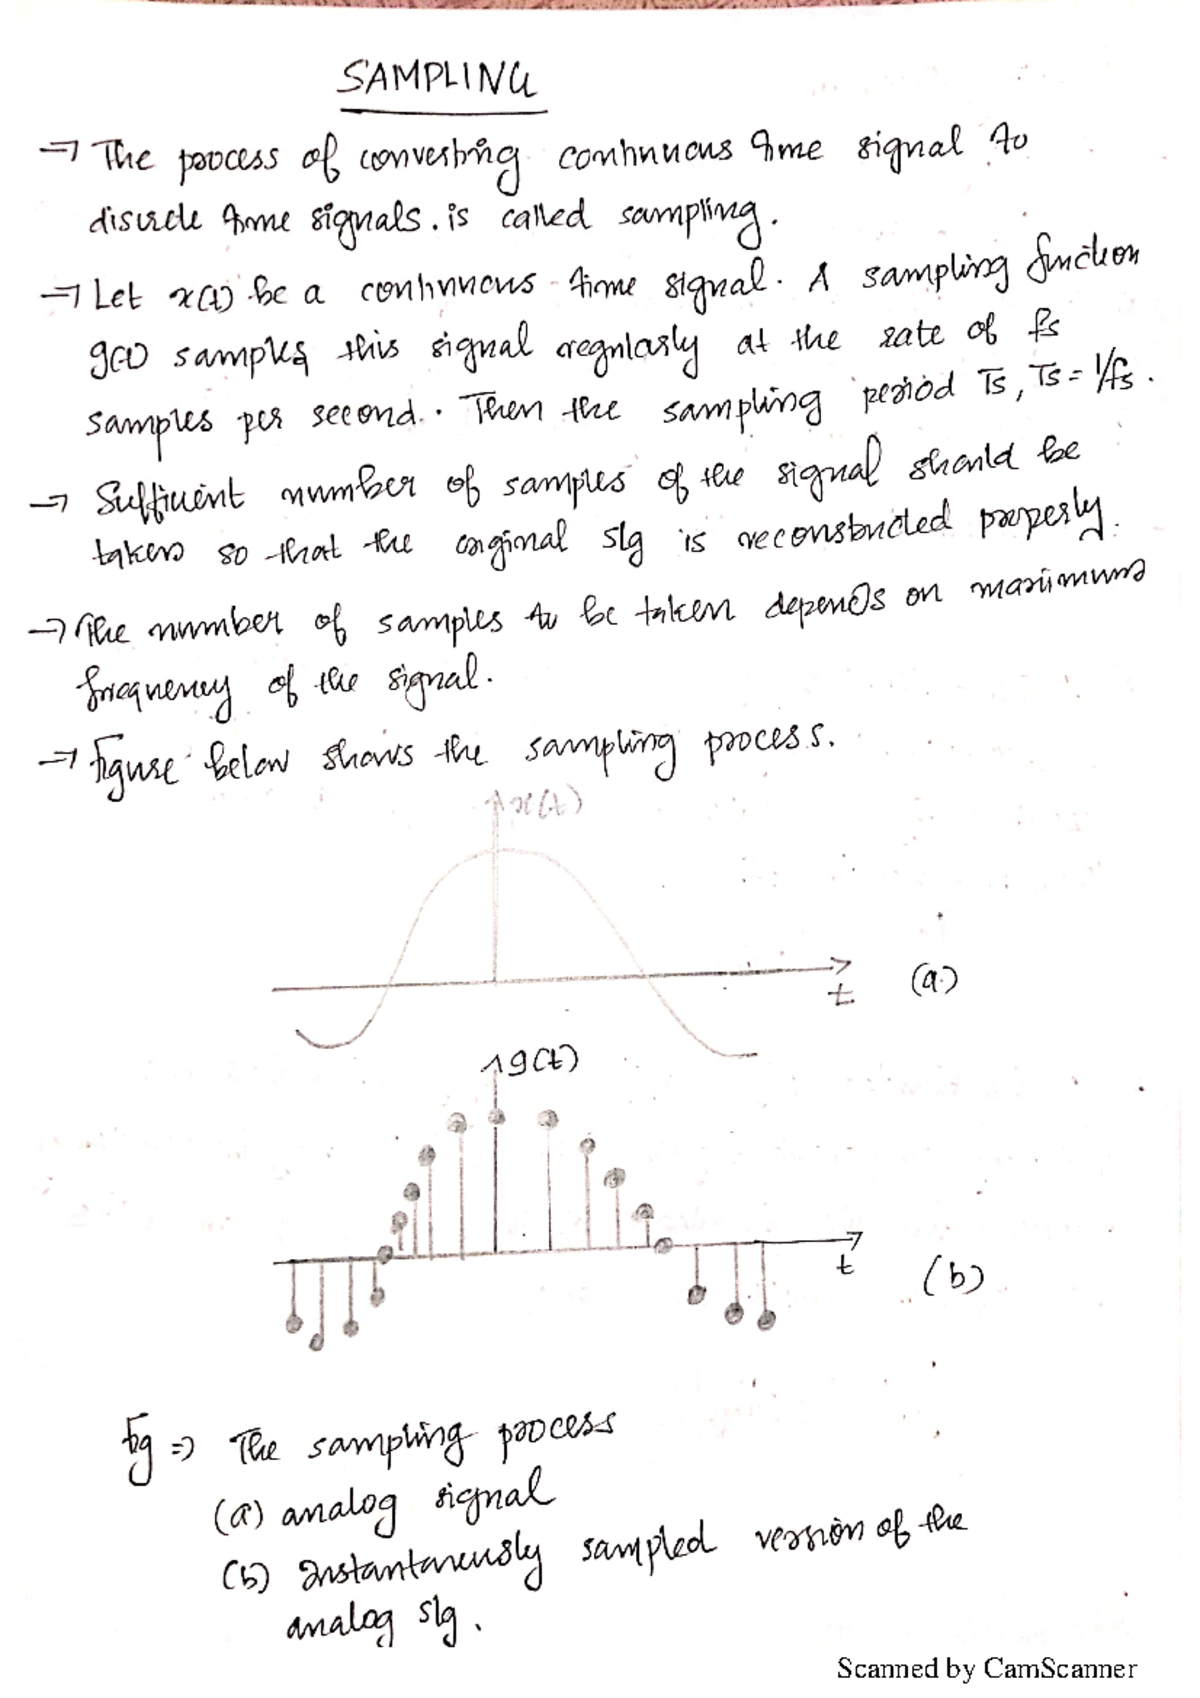 SAMPLING
→ The process of converting continuous time signal to
discrete time signals. is called sampling.
→ Let x(t) be a continuous-time signal. A sampling function
g(t) samples this signal regularly at the rate of fs
samples per second. Then the sampling period Ts, Ts = 1/fs.
→ Sufficient number of samples of the signal should be
taken so that the original slg is reconstructed properly.
→ The number of samples to be taken depends on maximum
frequency of the signal.
→ Figure below shows the sampling process.
x(t)
t
(a)
g(t)
t
(b)
Fig ⇒ The sampling process
(a) analog signal
(b) Instantaneously sampled version of the
analog slg.
Scanned by CamScanner